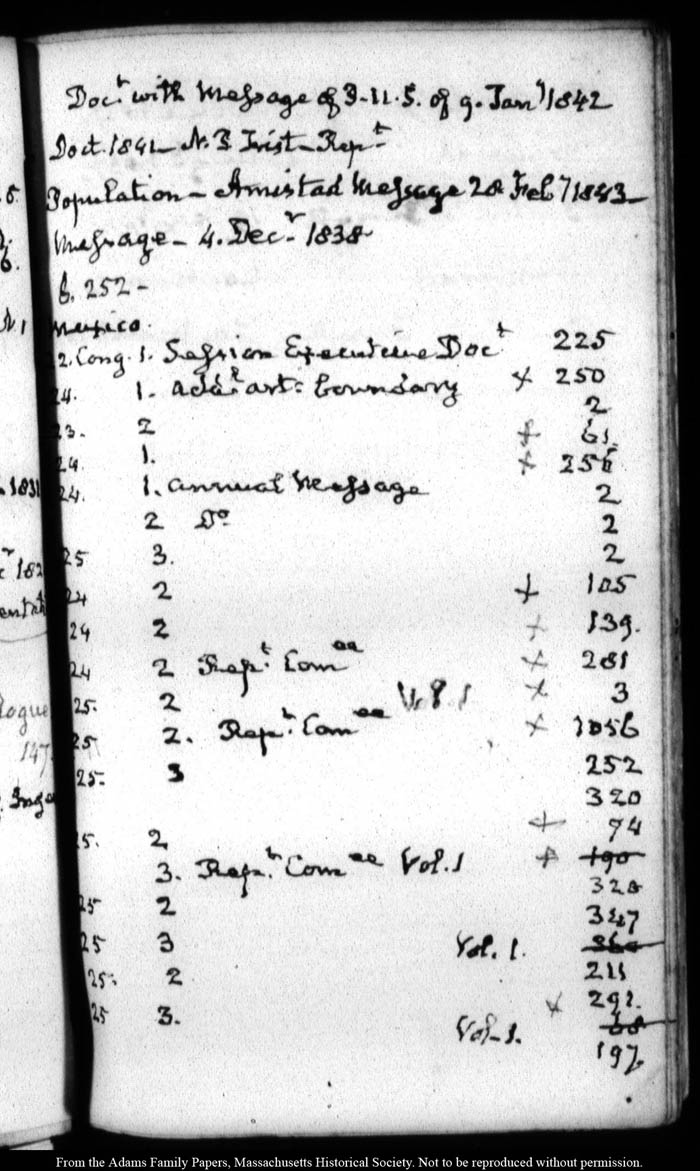 Doct. with Message of 3-11-5. of 9. Jany 1842
Doct. 1841- N. P. Trist- Rept
Population- Amistad Message 28 Feby 1843-
Message- 4. Decr 1838
6. 252-
Mexico.
22. Cong. 1. Session Executive Doct 225
24. 1. addl art: boundary x 250
2
23. 2 x 61.
24 1. x 256
24. 1. annual Message 2
2 Do 2
25 3. 2
24 2 x 105
24 2 x 139.
24 2 Rept. Comee x 281
25. 2 Vol. 1 x 3
25 2. Rept. Comee x 1056
25. 3 252
320
25. 2 x 74
3. Rept. Comee Vol. 1 x 190
320
25 2 347
25 3 Vol. 1. 
25. 2 211
x 291.
25 3. Vol-1. 68
197
5.
6.
N. 1
1831
182
logue
147
From the Adams Family Papers, Massachusetts Historical Society. Not to be reproduced without permission.